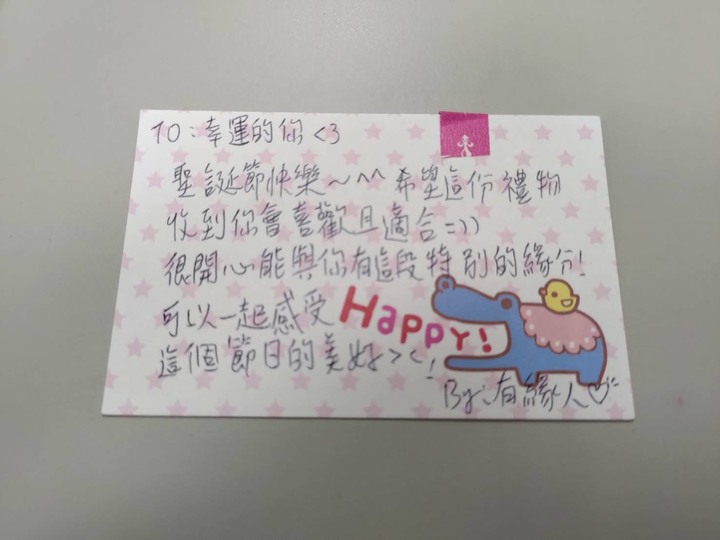 TO:幸運的你<3
聖誕節快樂~^^ 希望這份禮物
收到你會喜歡且適合=))
很開心能與你有這段特別的緣分!
可以一起感受
Happy!
這個節日的美好><!
By:有緣人♡